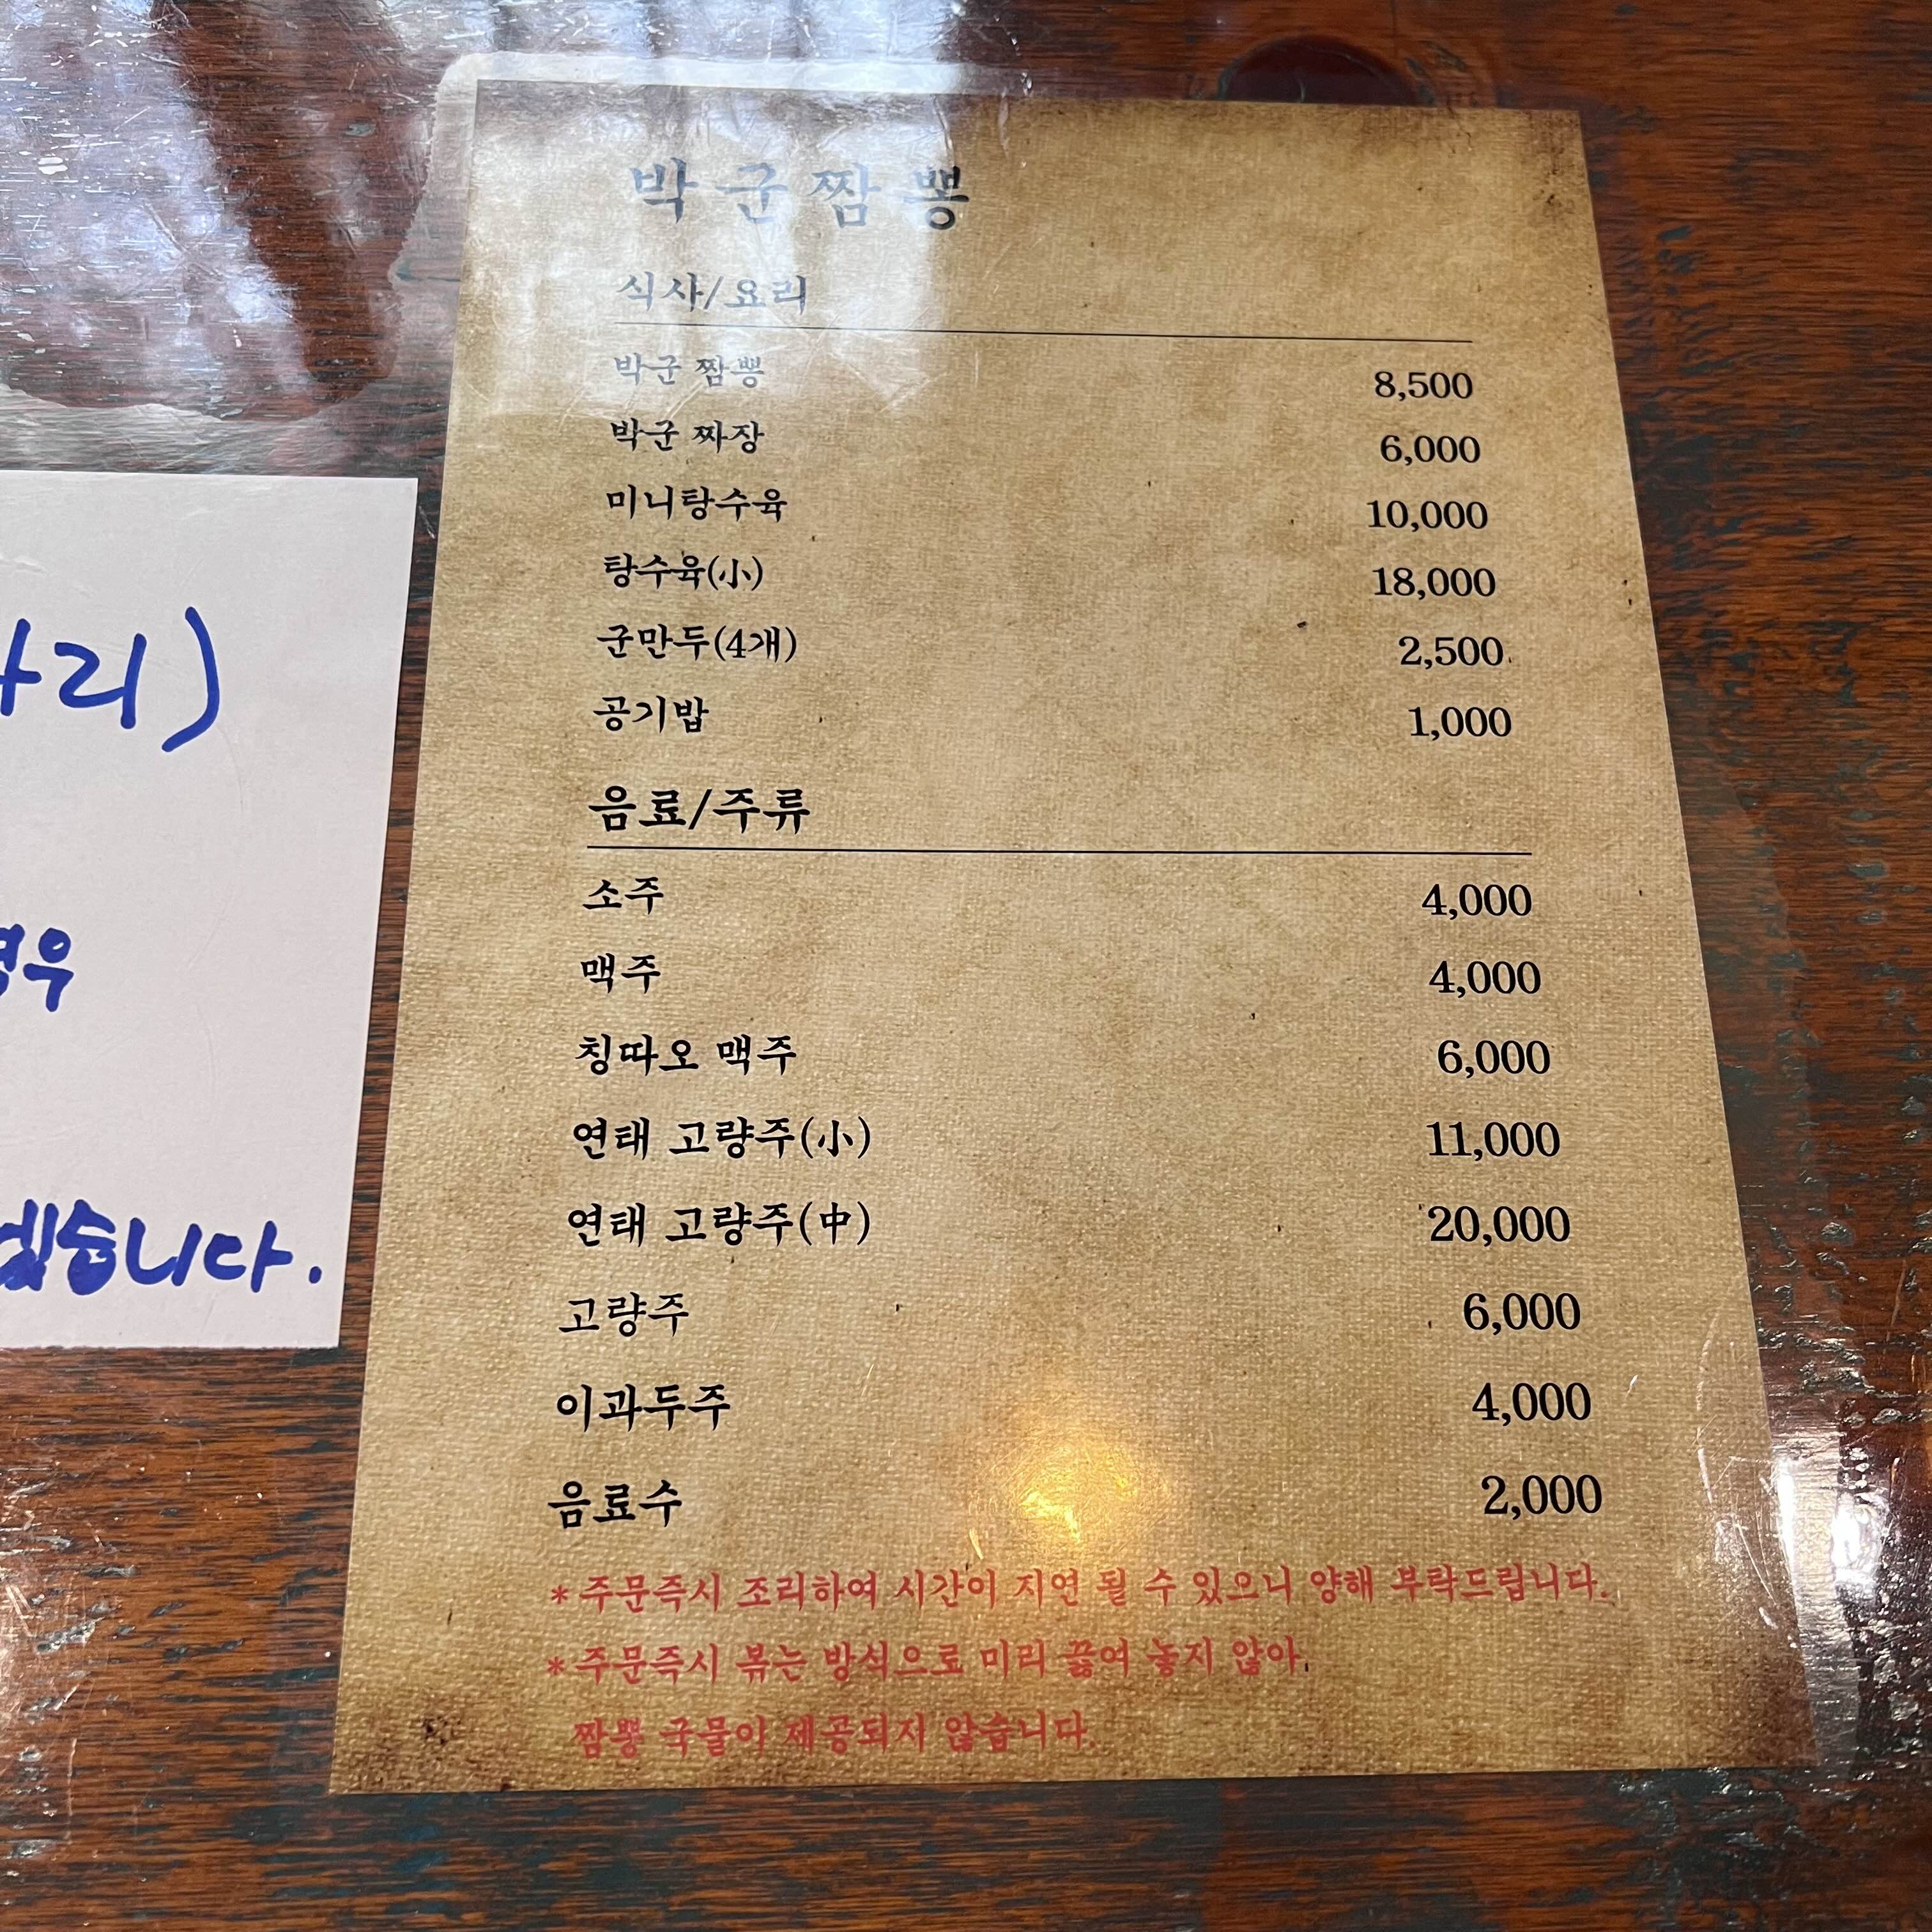 박군짬뽕
식사/요리
박군 짬뽕 8,500
박군 짜장 6,000
미니탕수육 10,000
탕수육(小) 18,000
군만두(4개) 2,500
공기밥 1,000
음료/주류
소주 4,000
맥주 4,000
칭따오 맥주 6,000
연태 고량주(小) 11,000
연태 고량주(中) 20,000
고량주 6,000
이과두주 4,000
음료수 2,000
*주문즉시 조리하여 시간이 지연 될 수 있으니 양해 부락드립니다.
*주문즉시 볶는 방식으로 미리 끓여 놓지 않아,
짬뽕 국물이 제공되지 않습니다.
리)
우
습니다.